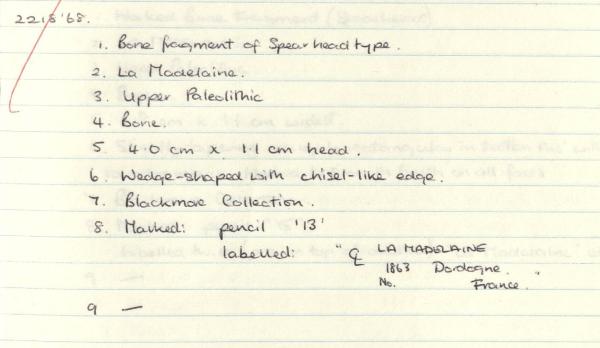 221S'68.
1. Bone fragment of Spearhead type.
2. La Madelaine.
3. Upper Paleolithic
4. Bone.
5. 4.0 cm x 1.1 cm head.
6. Wedge-shaped with chisel-like edge.
7. Blackmore Collection.
8. Marked: pencil '13'
labelled: " LA MADELAINE
1863 Dordogne.
No. France. "
9 —